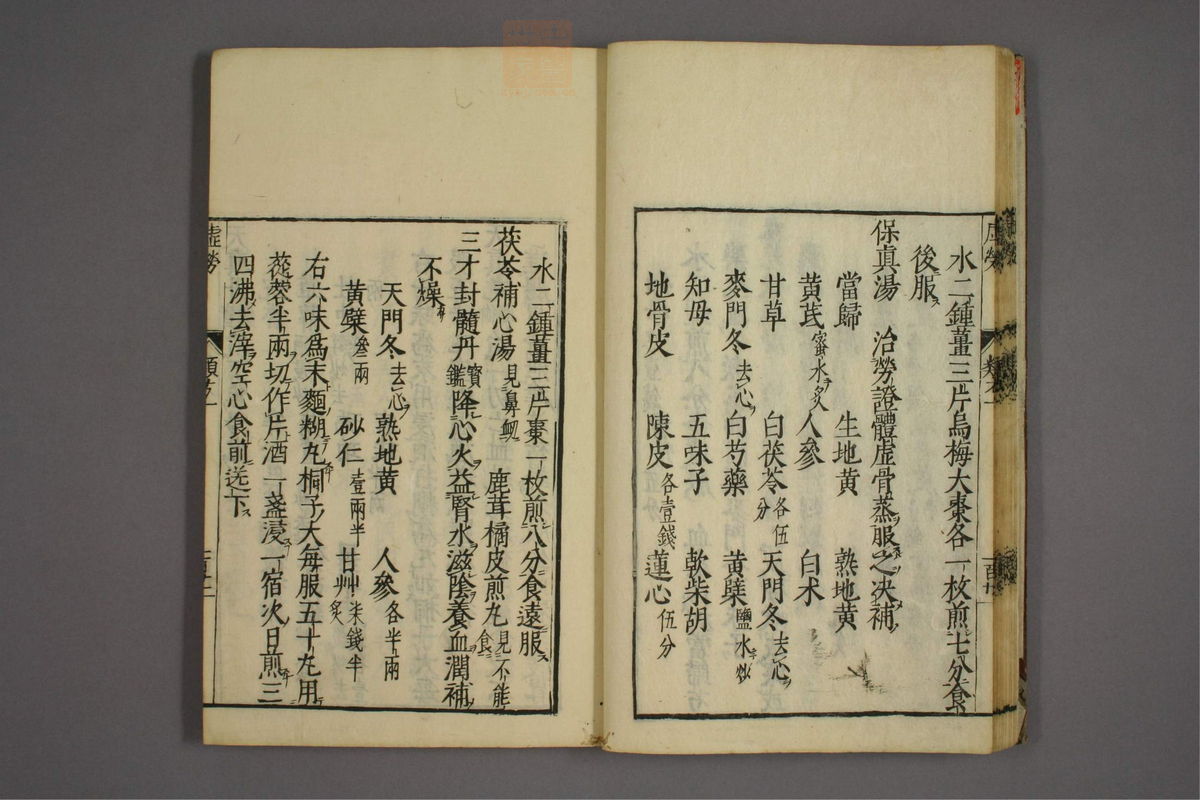 水二鍾薑三片烏梅大棗各一枚煎七分食
後服
保真湯　治勞證體虛骨蒸服之決補
當歸　生地黃　熟地黃
黃芪蜜水炙　人參　白术
甘草　白茯苓各伍分　天門冬去心
麥門冬去心　白芍藥　黃檗鹽水炒
知母　五味子　軟柴胡
地骨皮　陳皮各壹錢　蓮心伍分
水二鍾薑三片棗一枚煎八分食遠服
茯苓補心湯見鼻衄　鹿茸橘皮煎丸見不能食
三才封髓丹寶鑑降心火益腎水滋陰養血潤補
不燥
天門冬去心　熟地黃　人參各半兩
黃檗叄兩　砂仁壹兩半　甘艸炙柒錢半
右六味為末麵糊丸桐子大每服五十丸用
蓯蓉半兩切作片酒一盞浸一宿次日煎三
四沸去滓空心食前送下
虛勞
類之一